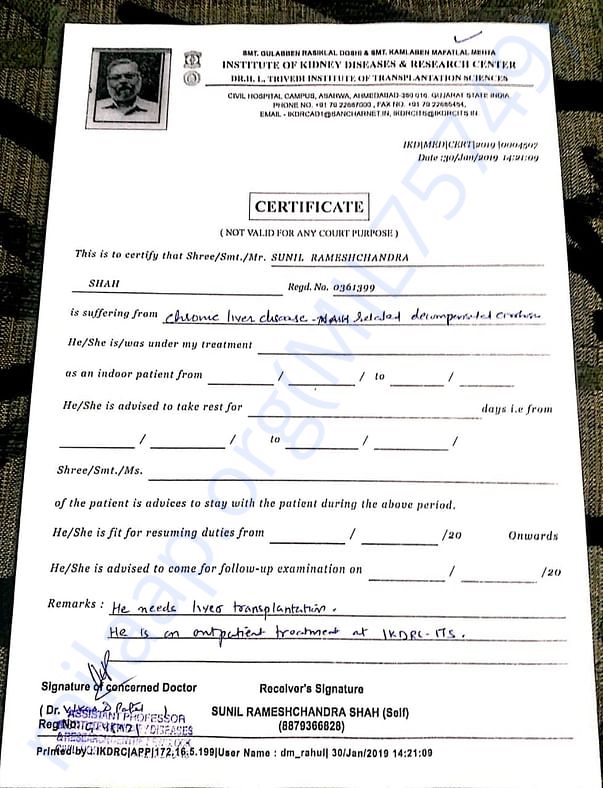 SMT. GULABBEN RASIKLAL DOSHI & SMT. KAMLABEN MAFATLAL MEHTA
INSTITUTE OF KIDNEY DISEASES & RESEARCH CENTER
DR.H. L. TRIVEDI INSTITUTE OF TRANSPLANTATION SCIENCES
CIVIL HOSPITAL CAMPUS, ASARWA, AHMEDABAD-380 016. GUJARAT STATE INDIA
PHONE NO. +91 79 22687000 , FAX NO. +91 79 22685454,
EMAIL - IKDRCAD1@SANCHARNET.IN, IKDRCITS@IKDRCITS.IN
IKD|MED|CERT|2019 |0004507
Date :30/Jan/2019 14:21:09
CERTIFICATE
( NOT VALID FOR ANY COURT PURPOSE )
This is to certify that Shree/Smt./Mr. SUNIL RAMESHCHANDRA
SHAH Regd. No. 0361399
is suffering from chronic liver disease - NASH related decompensated cirrhosis
He/She is/was under my treatment
as an indoor patient from / / to /
He/She is advised to take rest for days i.e from
/ / to / /
Shree/Smt./Ms.
of the patient is advices to stay with the patient during the above period.
He/She is fit for resuming duties from / /20 Onwards
He/She is advised to come for follow-up examination on / /20
Remarks : He needs liver transplantation.
He is on outpatient treatment at IKDRC-ITS.
Signature of concerned Doctor Receiver's Signature
( Dr. D Patel ) SUNIL RAMESHCHANDRA SHAH (Self)
ASSISTANT PROFESSOR
Reg No: (8879366828)
DISEASES
Printed by : IKDRC|APP|172.16.5.199|User Name : dm_rahul| 30/Jan/2019 14:21:09
milaap.org(MIL75749)